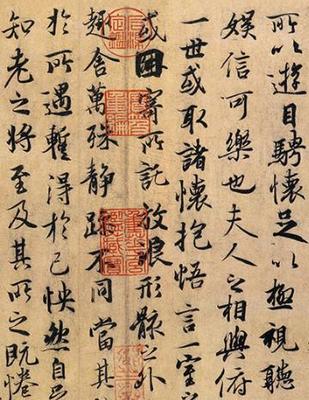 所以遊目騁懷足以極視聽
娛信可樂也夫人之相與俯
一世或取諸懷抱悟言一室
或因寄所託放浪形骸之外
趣舍萬殊靜躁不同當其
於所遇蹔得於己怏然自足
知老之將至及其所之既惓